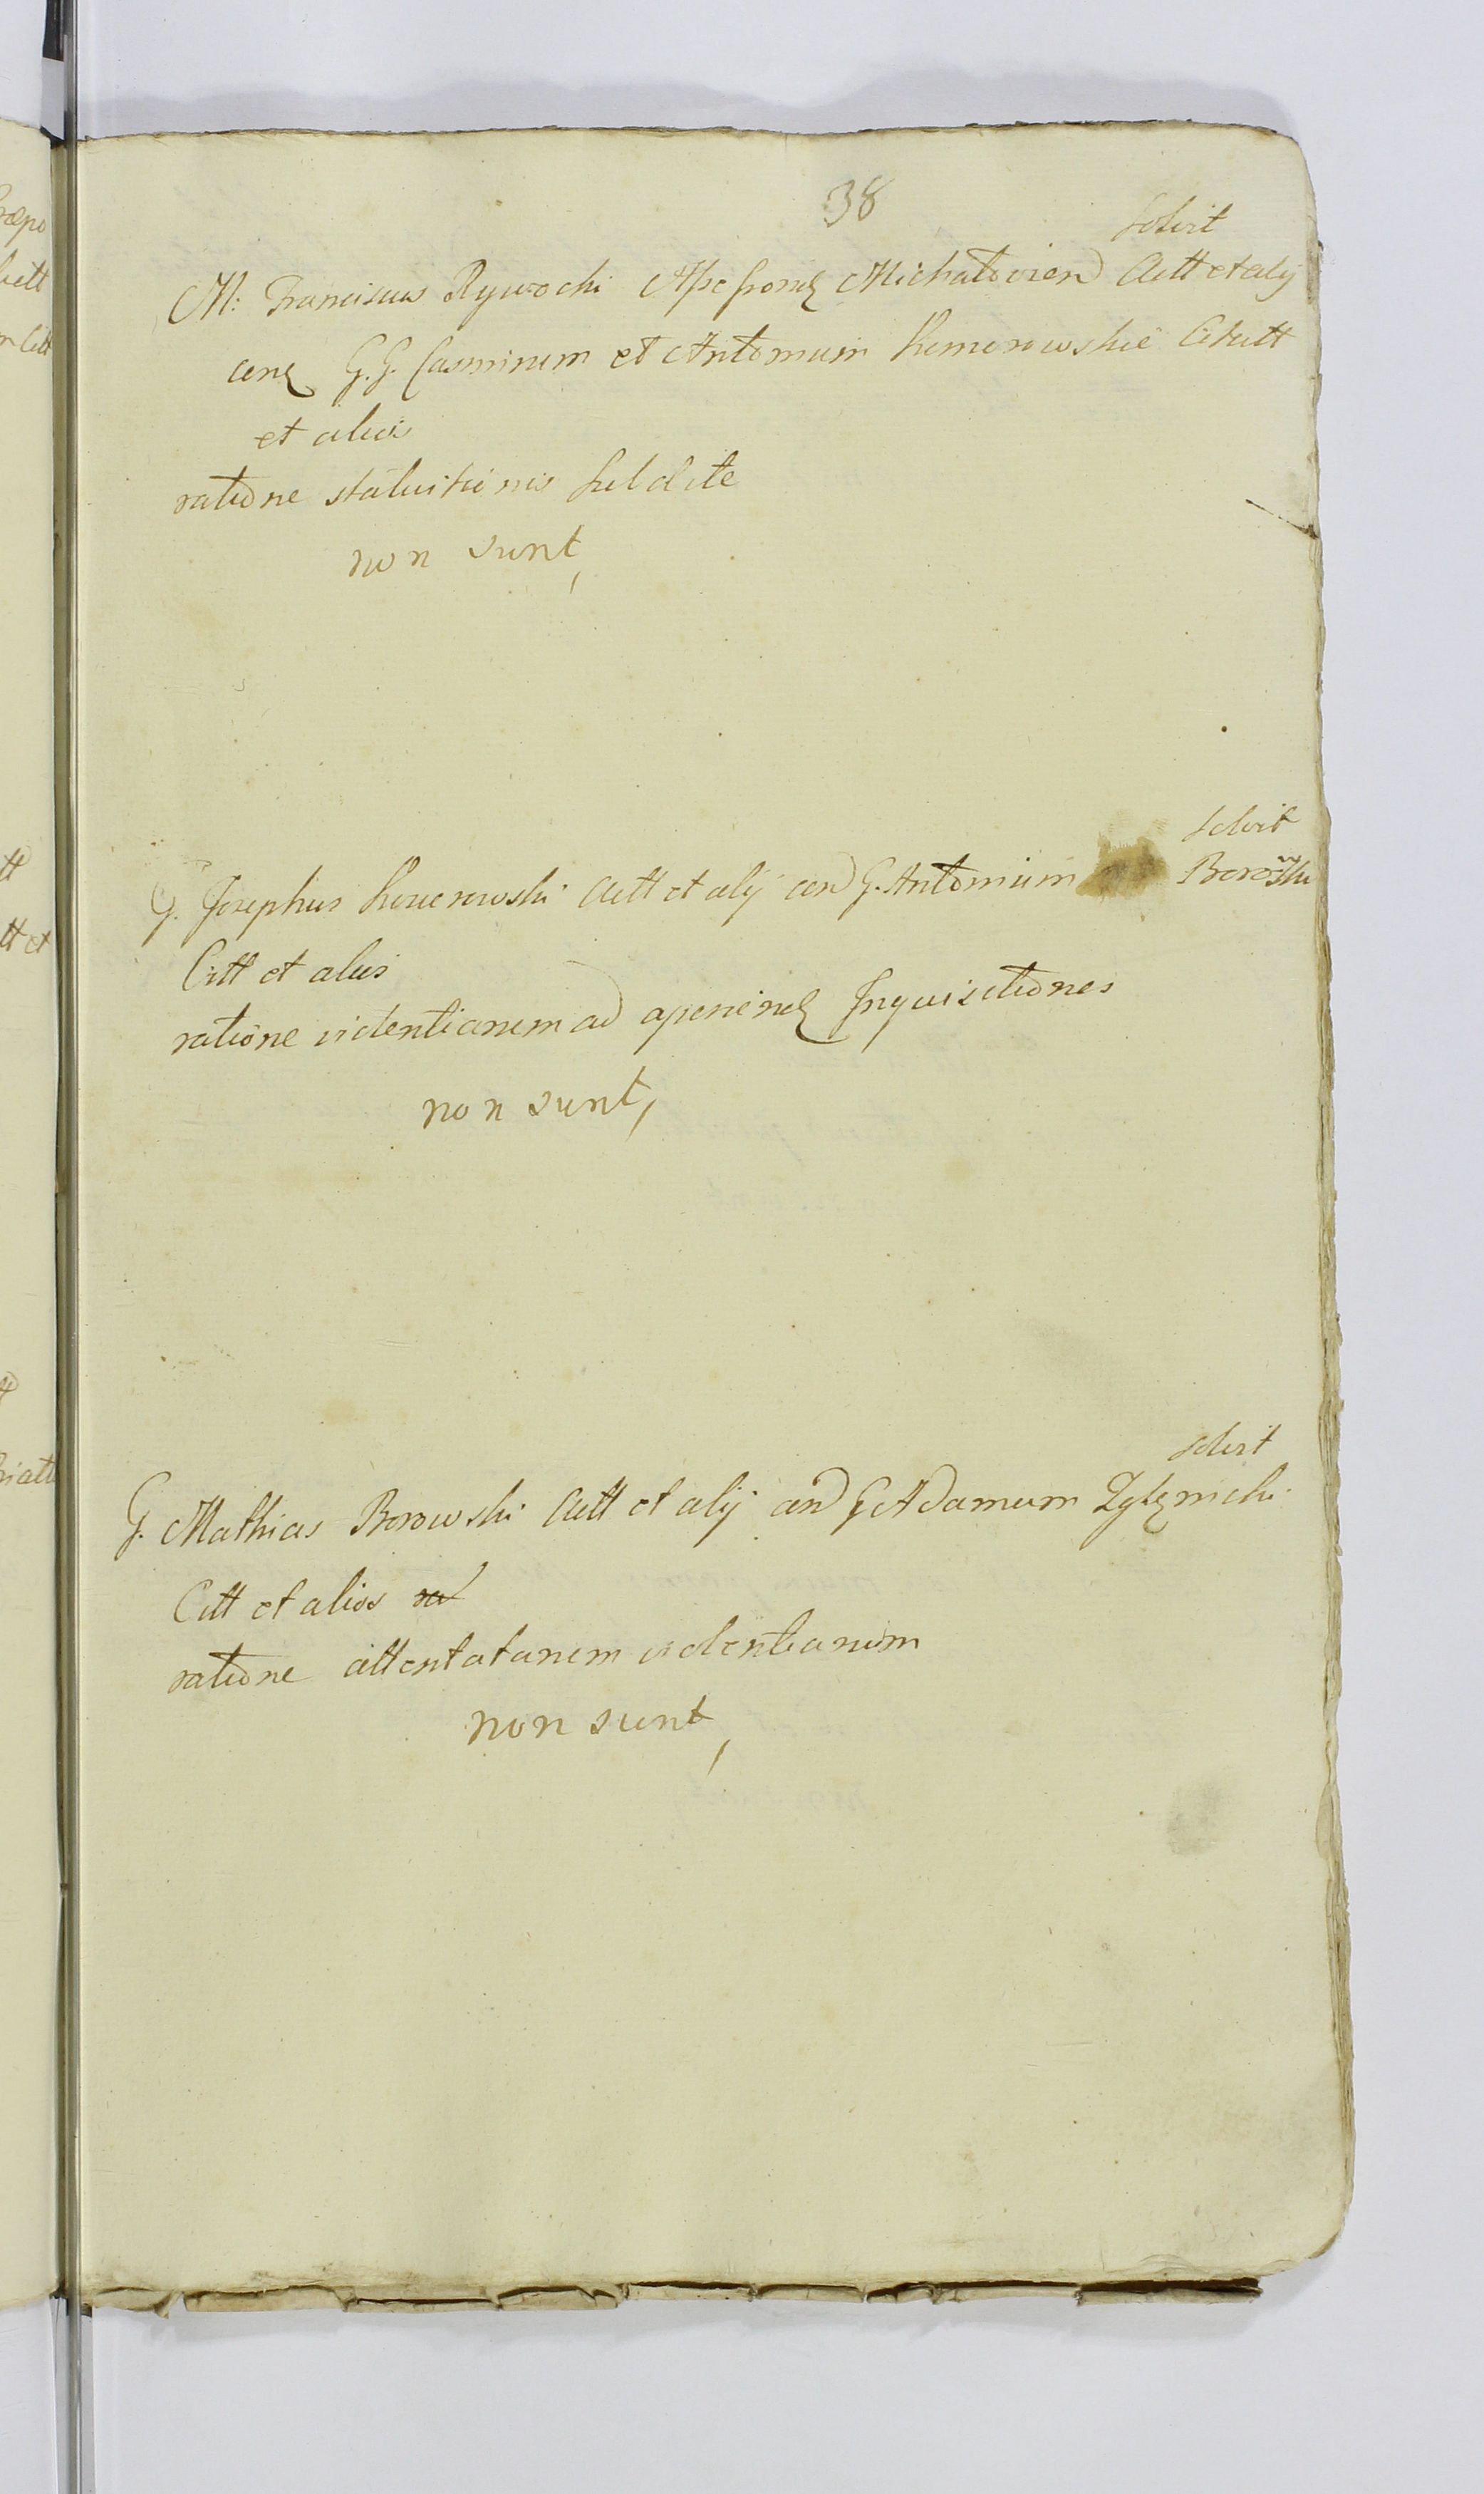 38
solvit
M: Franciscus Rywochi Michałovien Actt et alij
G. G. Casimirum et Antonium Komorowskie Citatt
et alios
ratione statuitionis subdite
non sunt,
solvit
G. Josephus Actt et alij con G. Antonium Borowski
Citt et alios
ratione violentiarum ad aperiend Inquisitiones
non sunt,
solvit
G. Mathias Borowski Actt et alij con G Adamum
Citt et alios
ratione attentatarum violentiarum
non sunt,